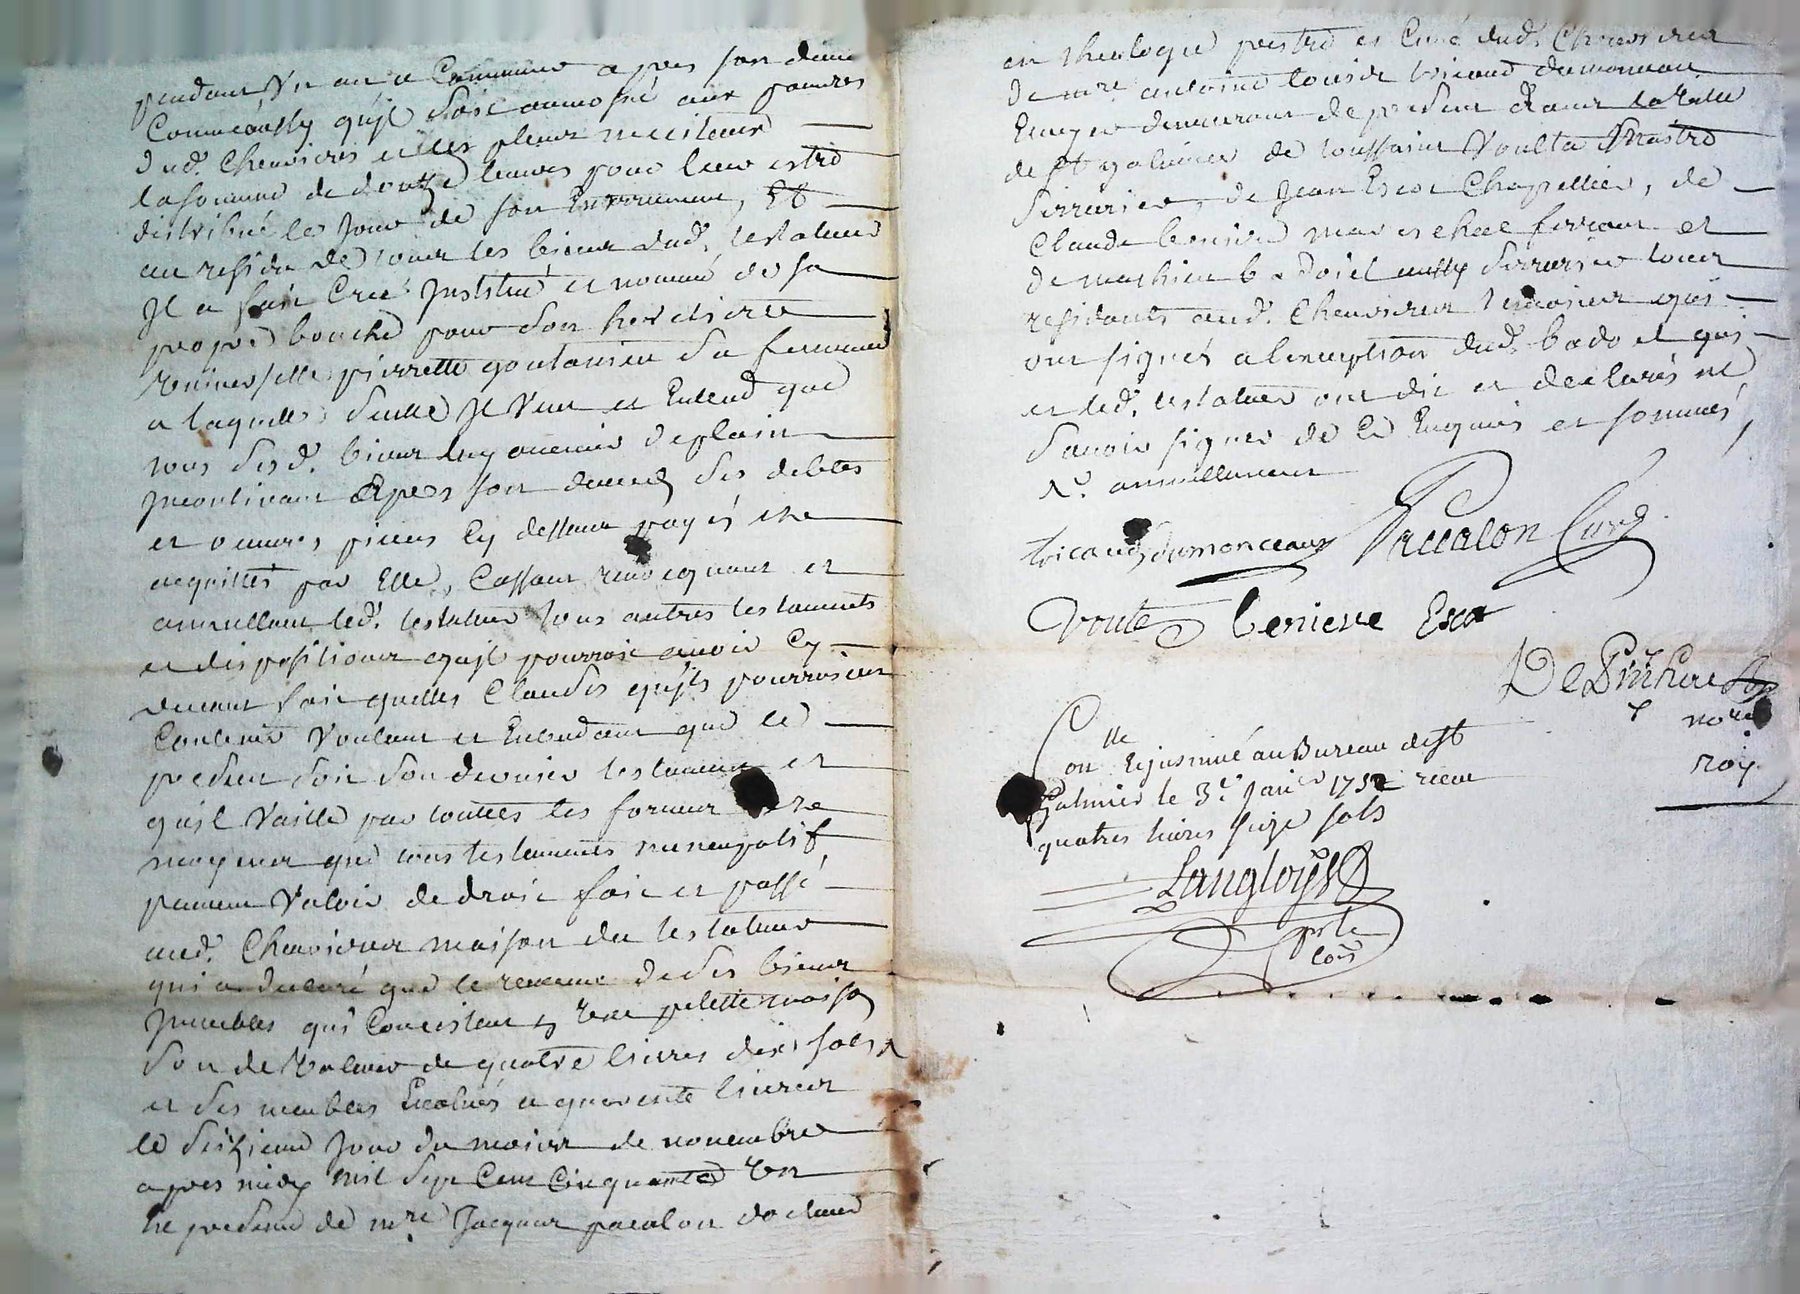 pendant Un an a Commencer apres son deces
Comm'aussy qu'jl soit aumosné aux pauvres
dud. Chevrieres et les plus necessiteux
la somme de douze livres pour leur estre
distribué le Jour de son Enterrement, Et
au residu de tous les biens dud. testateur
Jl a fait Créé Jnstitué et nommé de sa
propre bouche pour son heretiere
Universelle pierrette goutarieu sa femme
a laquelle seulle Jl Veut et Entend que
tous sesd. biens luy avenir de plain
Jncontinant Apres son decedz ses debtes
et oeuvres pieus Cy dessus payés ene
acquittés par Elle, Cassant revocquant et
annullant led. testateur tous autres testaments
et dispositions qu'jl pourroit avoir Cy
devant fait quelles Clauses qu'jls pourroient
Contenir Voulant et Entendant que le
present soit son dernier testament et
qu'il Vaille par touttes les formes ene
moyens que tous testaments nuncupatif
peuvent Valoir de droit fait et passé
aud. Chevrieres maison du testateur
qui a declaré que le revenu de ses biens
Jmeubles qui Consistent en Une petitte maison
son de Valeur de quatre livres dix sols
et ses meubles Evalués a quarente livres
le sixieme Jour du mois de novembre
apres midy mil sept Cent Cinquante Un
ne presence de mre Jacques pacalon docteur
en theologie prestre et Curé dud. Chevrieres
de mre antoine louis de tricaud dumonceau
Ecuyer demeurant de present dans la Ville
de St galmier de toussaint Voulta Mastre
serrurier, de Jean Escot Chapellier, de
Claude beniere mareschal ferrant et
de mathieu badoiel aussy serrurier tous
residants aud. Chevrieres temoins qui
ont signés a l'exeception dud. badoiel qui
et led. testateur ont dit et declarés ne
sçavoir signer de Ce Enquis et sommés
R. annullement
tricaud dumonceaux Paccalon Curé
Voulte beniere Escot
De Punhere
nore
roy
Conlle Et jnsinué au Bureau de St
Galmier le 3e. Janr 1752 receu
quatres livres seize sols
Langloys